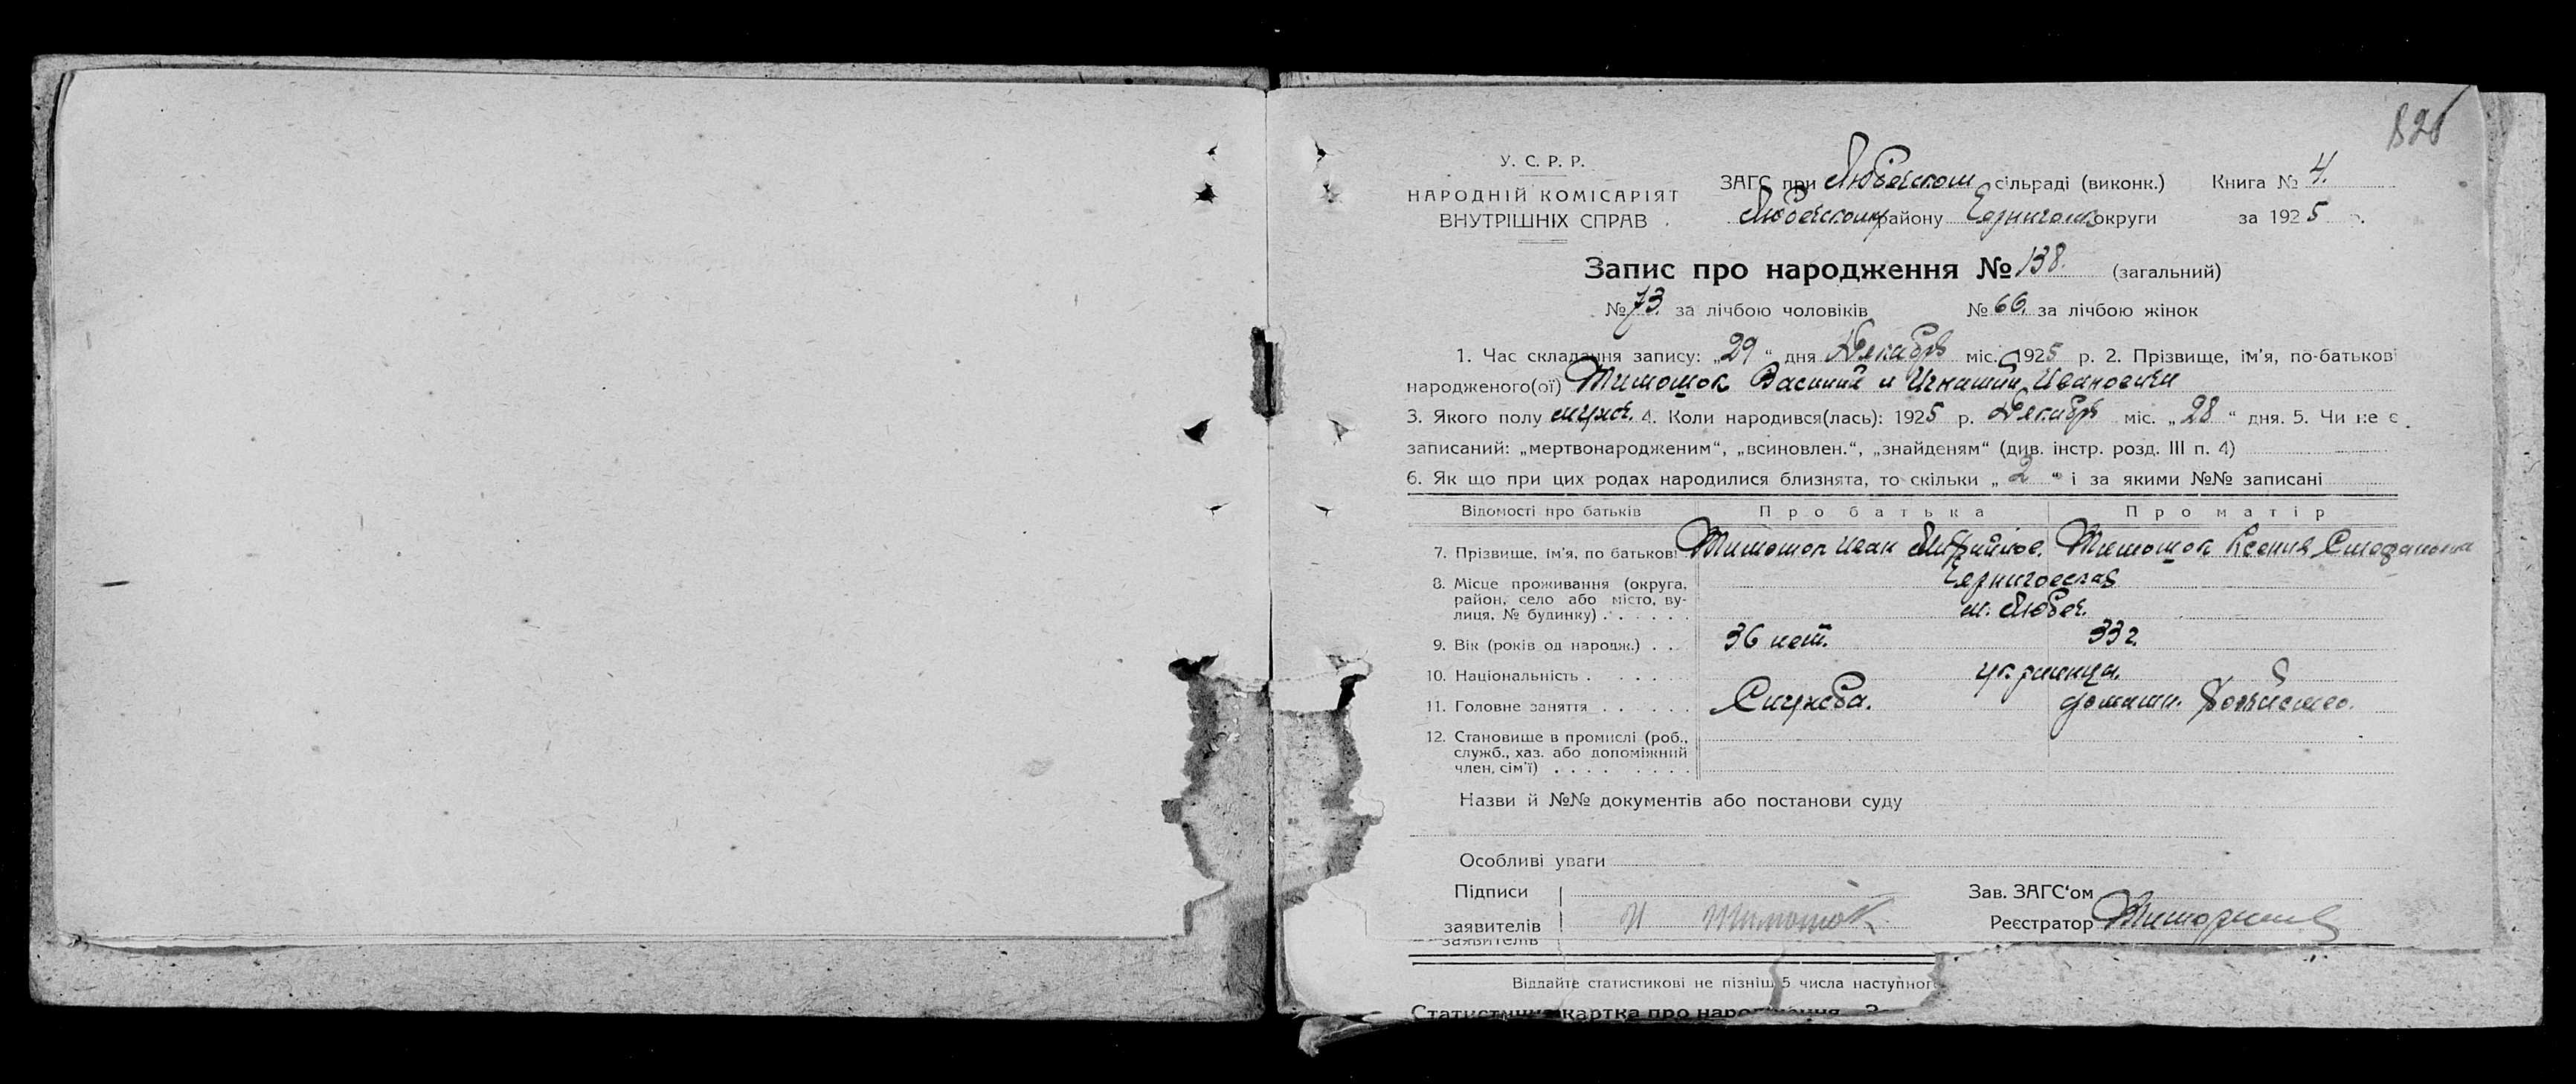 826
У. С. Р. Р.
НАРОДНІЙ КОМІСАРІЯТ
ВНУТРІШНІХ СПРАВ
ЗАГС при Любечском сільраді (виконк.) Книга № 4.
Любечском району округи за 1925 р.
Запис про народження № 138. (загальний)
№ 73. за лічбою чоловіків № 66. за лічбою жінок
1. Час складання запису: „29“ дня Декабря міс. 1925 р. 2. Прізвище, ім’я, по-батькові
народженого(ої) Тимошок Василий и Игнатий Ивановичи
3. Якого полу мужс. 4. Коли народився(лась): 1925 р. Декабря міс. „28“ дня. 5. Чи не є
записаний: „мертвонародженим“, „всиновлен.“, „знайденям“ (див. інстр. розд. III п. 4)
6. Як що при цих родах народилися близнята, то скільки „2“ і за якими №№ записані
Відомості про батьків Про батька Про матір
7. Прізвище, ім’я, по батькові Тимошок Иван Тимошок Ксения Стефановна
8. Місце проживання (округа, район, село або місто, вулиця, № будинку) . . . . . .
Черниговская
м. Любеч.
9. Вік (років од народж.) . . 36 лет. 33 г.
10. Національність . . . . . украинцы.
11. Головне заняття . . . . . . Служба. домашн. хозяйство.
12. Становище в промислі (роб.,
служб., хаз. або допоміжний
член, сім’ї) . . . . . . . .
Назви й №№ документів або постанови суду
Особливі уваги
Підписи Зав. ЗАГС‘ом
заявителів И Тимошок Реєстратор
заявителів
Віддайте статистикові не пізніш 5 числа наступного
Статистична картка про народження